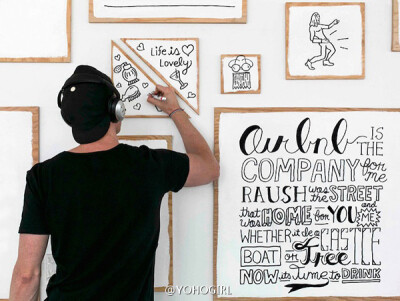 Life is
Lovely
airbnb IS
THE
COMPANY for
me
RAUSH was the STREET
that
was a HOME for YOU and
ME
WHETHER it be a CASTLE
BOAT or Tree
NOW its Time to DRINK
@YOHOGIRL